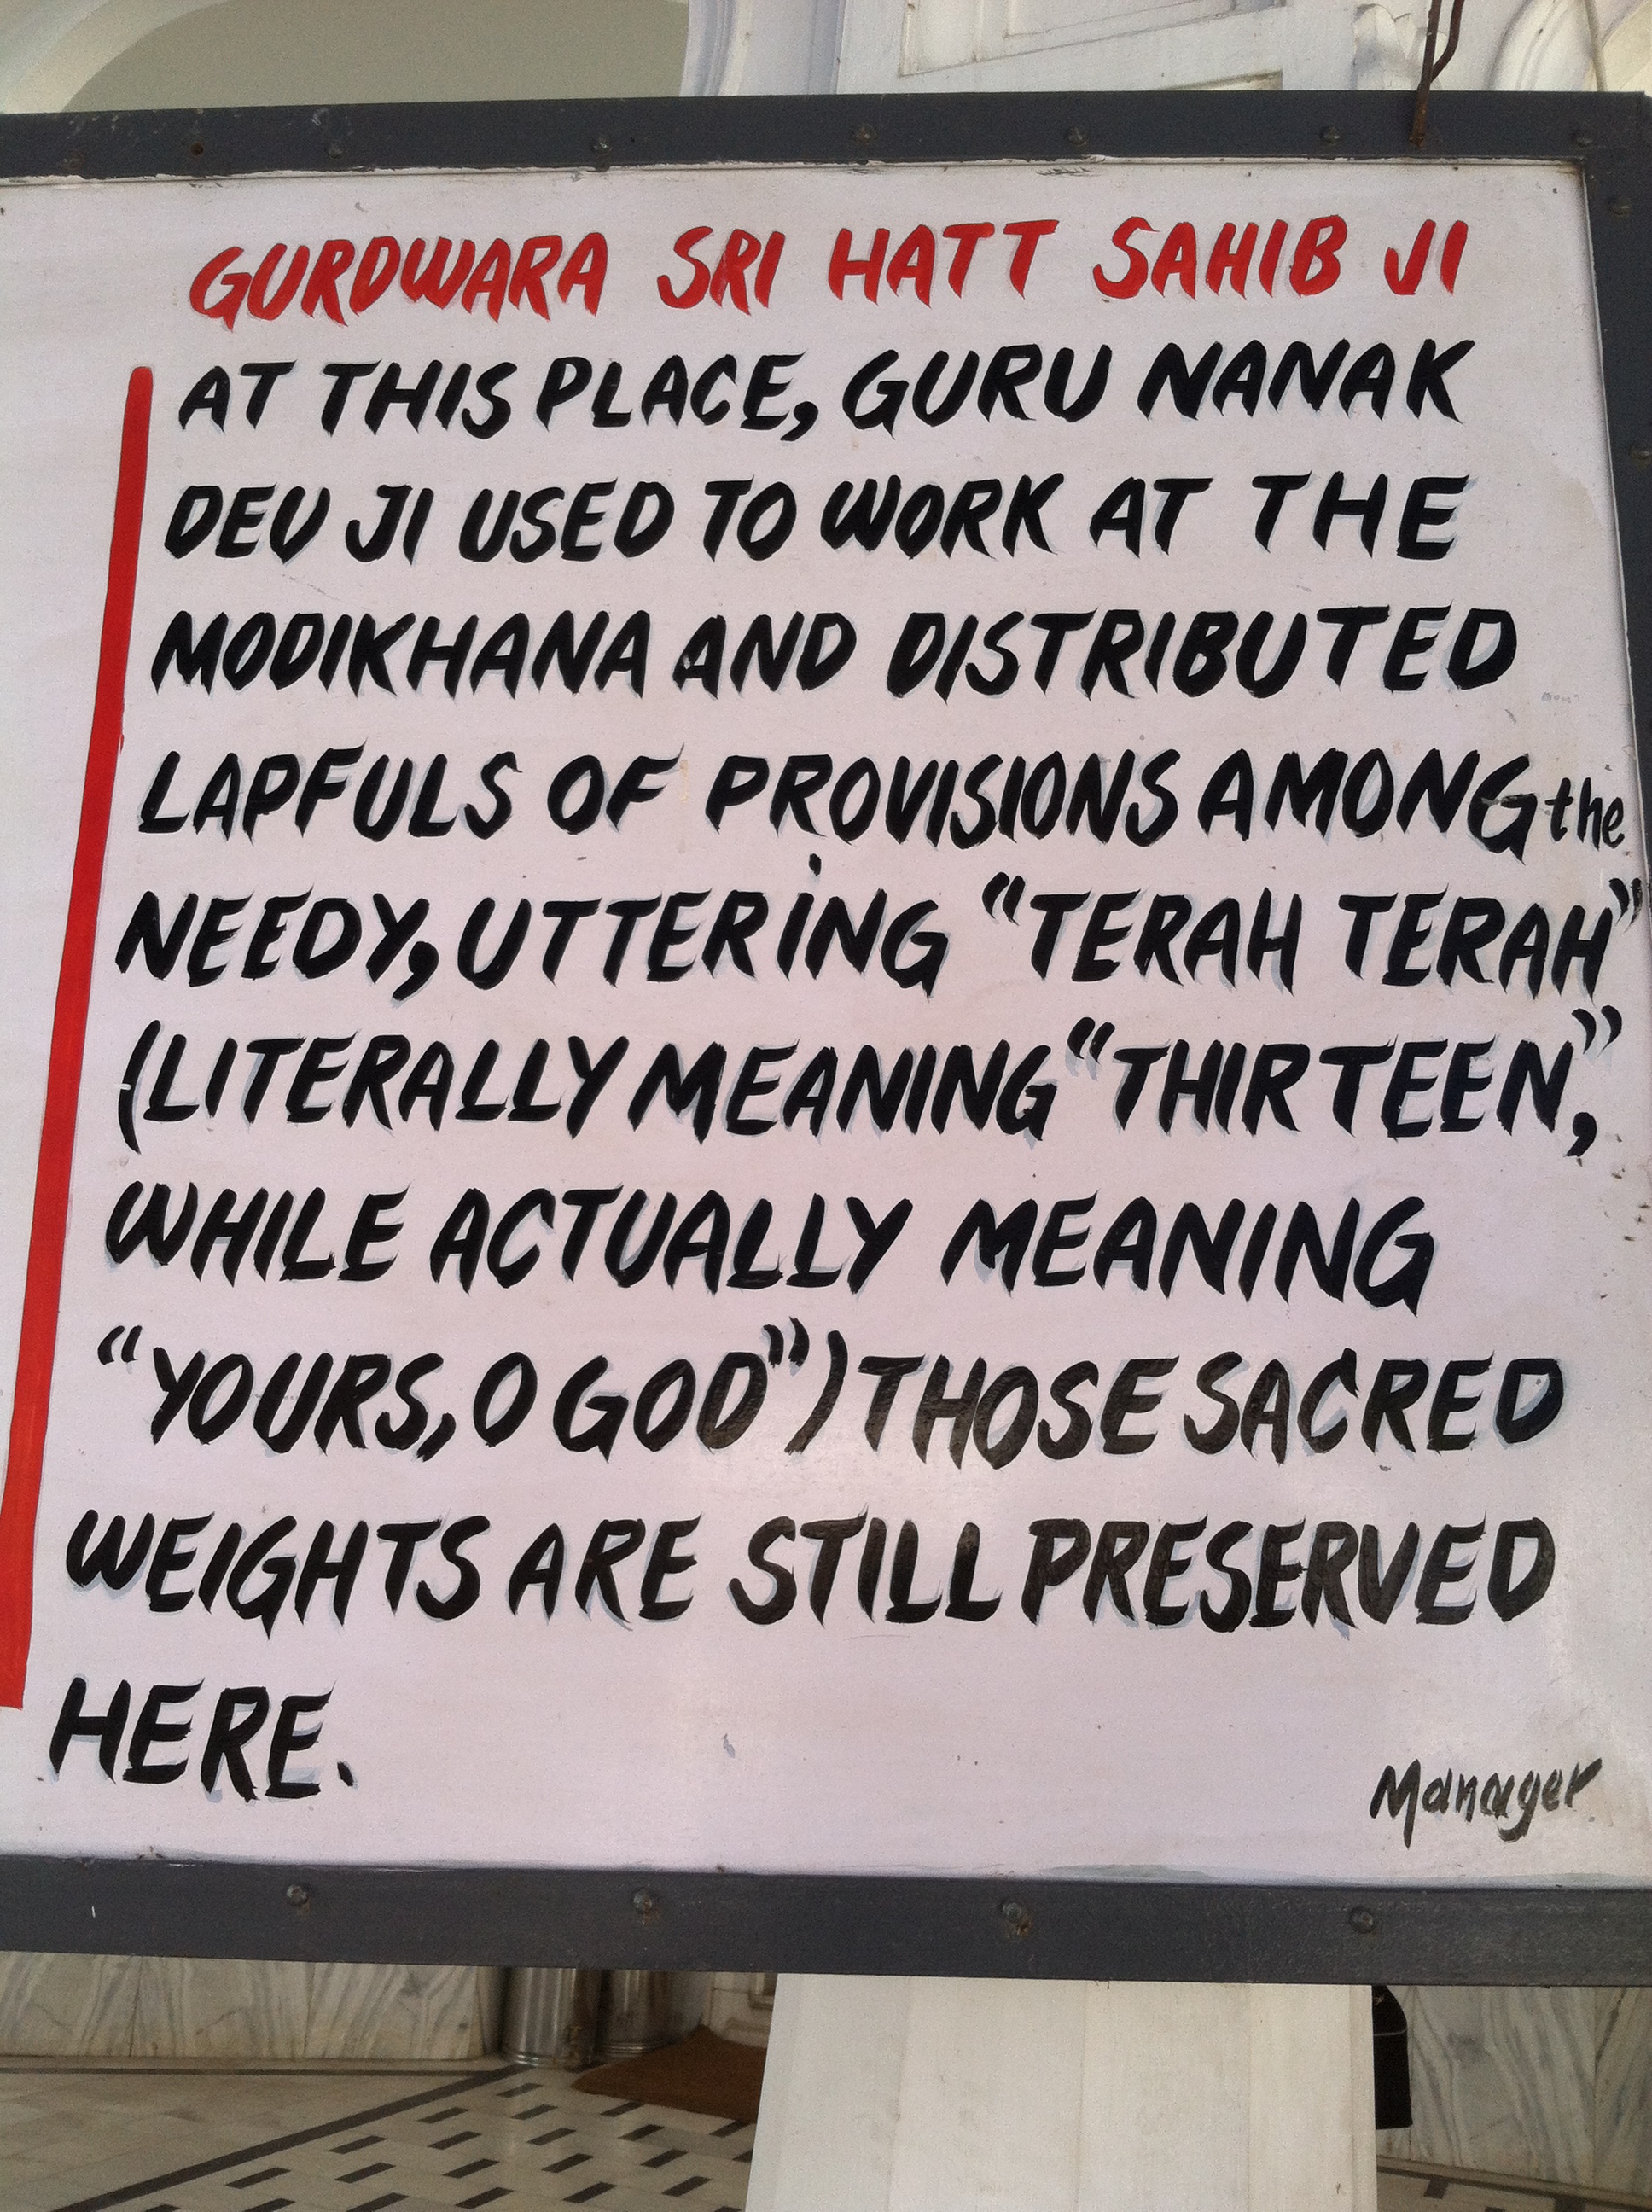 GURDWARA SRI HATT SAHIB JI
AT THIS PLACE, GURU NANAK
DEV JI USED TO WORK AT THE
MODIKHANA AND DISTRIBUTED
LAPFULS OF PROVISIONS AMONG the
NEEDY, UTTERING "TERAH TERAH"
(LITERALLY MEANING "THIRTEEN,"
WHILE ACTUALLY MEANING
"YOURS, O GOD") THOSE SACRED
WEIGHTS ARE STILL PRESERVED
HERE.
Manager